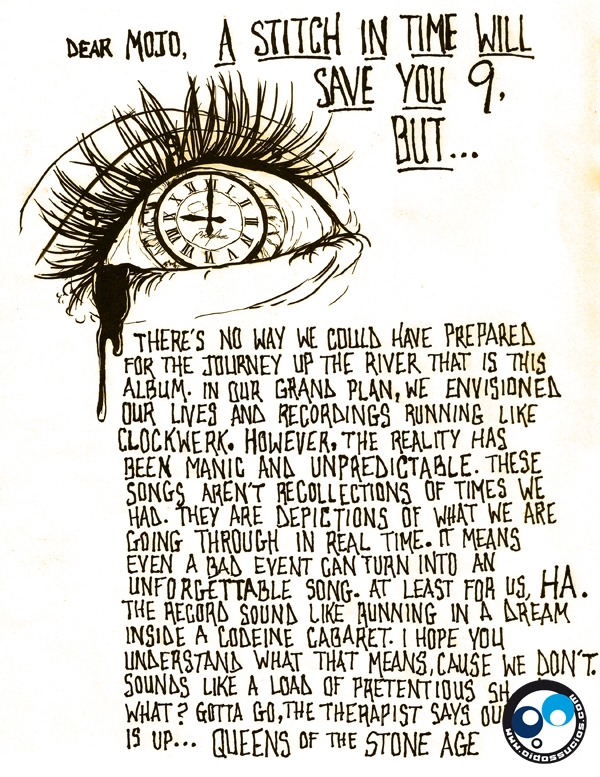 DEAR MOJO, A STITCH IN TIME WILL
SAVE YOU 9,
BUT...
THERE'S NO WAY WE COULD HAVE PREPARED
FOR THE JOURNEY UP THE RIVER THAT IS THIS
ALBUM. IN OUR GRAND PLAN, WE ENVISIONED
OUR LIVES AND RECORDINGS RUNNING LIKE
CLOCKWERK. HOWEVER, THE REALITY HAS
BEEN MANIC AND UNPREDICTABLE. THESE
SONGS AREN'T RECOLLECTIONS OF TIMES WE
HAD. THEY ARE DEPICTIONS OF WHAT WE ARE
GOING THROUGH IN REAL TIME. IT MEANS
EVEN A BAD EVENT CAN TURN INTO AN
UNFORGETTABLE SONG. AT LEAST FOR US, HA.
THE RECORD SOUND LIKE RUNNING IN A DREAM
INSIDE A CODEINE CABARET. I HOPE YOU
UNDERSTAND WHAT THAT MEANS, CAUSE WE DON'T.
SOUNDS LIKE A LOAD OF PRETENTIOUS SH
WHAT? GOTTA GO, THE THERAPIST SAYS OU
IS UP... QUEENS OF THE STONE AGE
WWW.OIDOSSUCIOS.COM